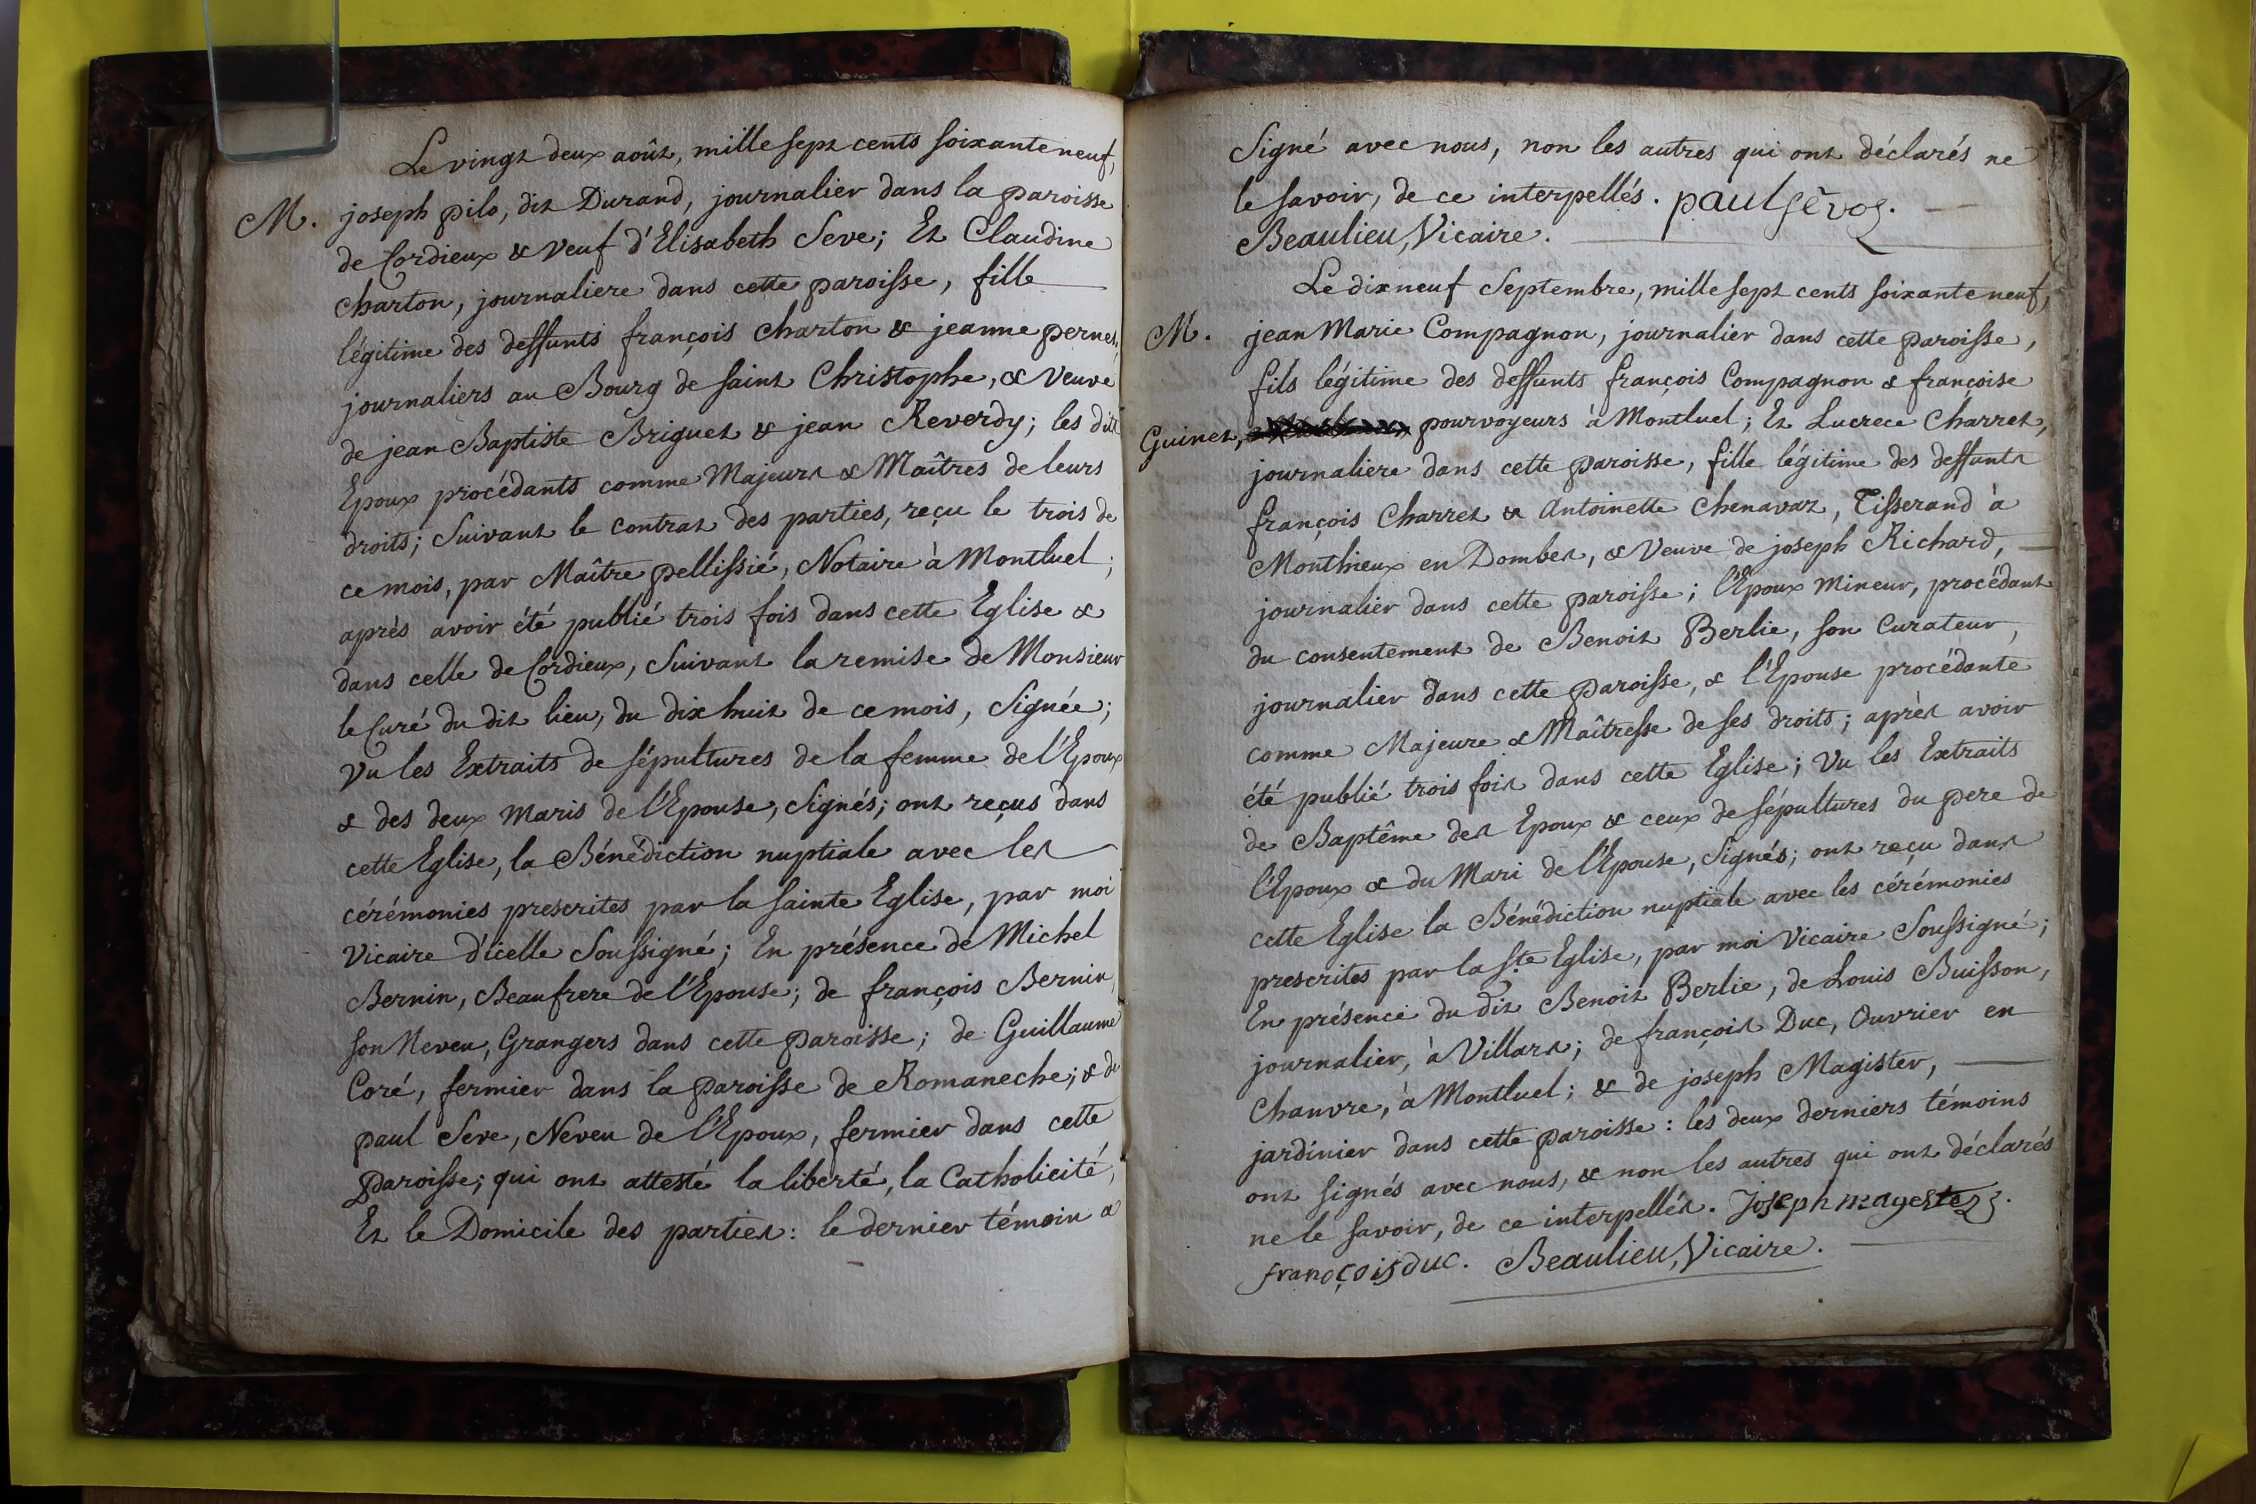 Le vingt deux août, mille sept cents soixante neuf,
M. joseph pilo, dit Durand, journalier dans la paroisse
de Cordieux & veuf d'Elisabeth Seve; Et Claudine
Charton, journaliere dans cette paroisse, fille
légitime des deffunts françois Charton & jeanne pernet,
journaliers au Bourg de saint Christophe, & veuve
de jean Baptiste Briguet & jean Reverdy; les dits
Epoux procédants comme Majeurs & Maîtres de leurs
droits; Suivant le contrat des parties, reçu le trois de
ce mois, par Maître pellissié, Notaire à Montluel;
après avoir été publié trois fois dans cette Eglise &
dans celle de Cordieux, Suivant la remise de Monsieur
le Curé du dit lieu, du dix huit de ce mois, Signée;
Vu les Extraits de sépultures de la femme de l'Epoux
& des deux Maris de l'Epouse, Signés; ont reçus dans
cette Eglise, la Bénédiction nuptiale avec les
cérémonies prescrites par la sainte Eglise, par moi
Vicaire d'icelle Soussigné; En présence de Michel
Bernin, Beaufrere de l'Epouse; de françois Bernin,
son Neveu, Grangers dans cette paroisse; de Guillaume
Coré, fermier dans la paroisse de Romaneche; & de
paul Seve, Neveu de l'Epoux, fermier dans cette
paroisse; qui ont attesté la liberté, la Catholicité,
Et le Domicile des parties: le dernier témoin a
Signé avec nous, non les autres qui ont déclarés ne
le savoir, de ce interpellés. paul sèvoz.
Beaulieu, Vicaire.
Le dix neuf Septembre, mille sept cents soixante neuf,
M. jean Marie Compagnon, journalier dans cette paroisse,
fils légitime des deffunts françois Compagnon & françoise
Guinet, pourvoyeurs à Montluel; Et Lucrece Charret,
journaliere dans cette paroisse, fille légitime des deffunts
françois Charret & Antoinette Chenavaz, Tisserand à
Monthieux en Dombes, & Veuve de joseph Richard,
journalier dans cette paroisse; l'Epoux Mineur, procédant
du consentement de Benoit Berlie, son Curateur,
journalier dans cette paroisse, & l'Epouse procédante
comme Majeure & Maîtresse de ses droits; après avoir
été publié trois fois dans cette Eglise; Vu les Extraits
de Baptême des Epoux & ceux de sépultures du pere de
l'Epoux & du Mari de l'Epouse, Signés; ont reçu dans
cette Eglise la Bénédiction nuptiale avec les cérémonies
prescrites par la ste Eglise, par moi Vicaire Soussigné;
En présence du dit Benoit Berlie, de Louis Buisson,
journalier, à Villars; de françois Duc, Ouvrier en
Chanvre, à Montluel; & de joseph Magister,
jardinier dans cette paroisse: les deux derniers témoins
ont signés avec nous, & non les autres qui ont déclarés
ne le savoir, de ce interpellés. Joseph magester.
françois duc. Beaulieu, Vicaire.